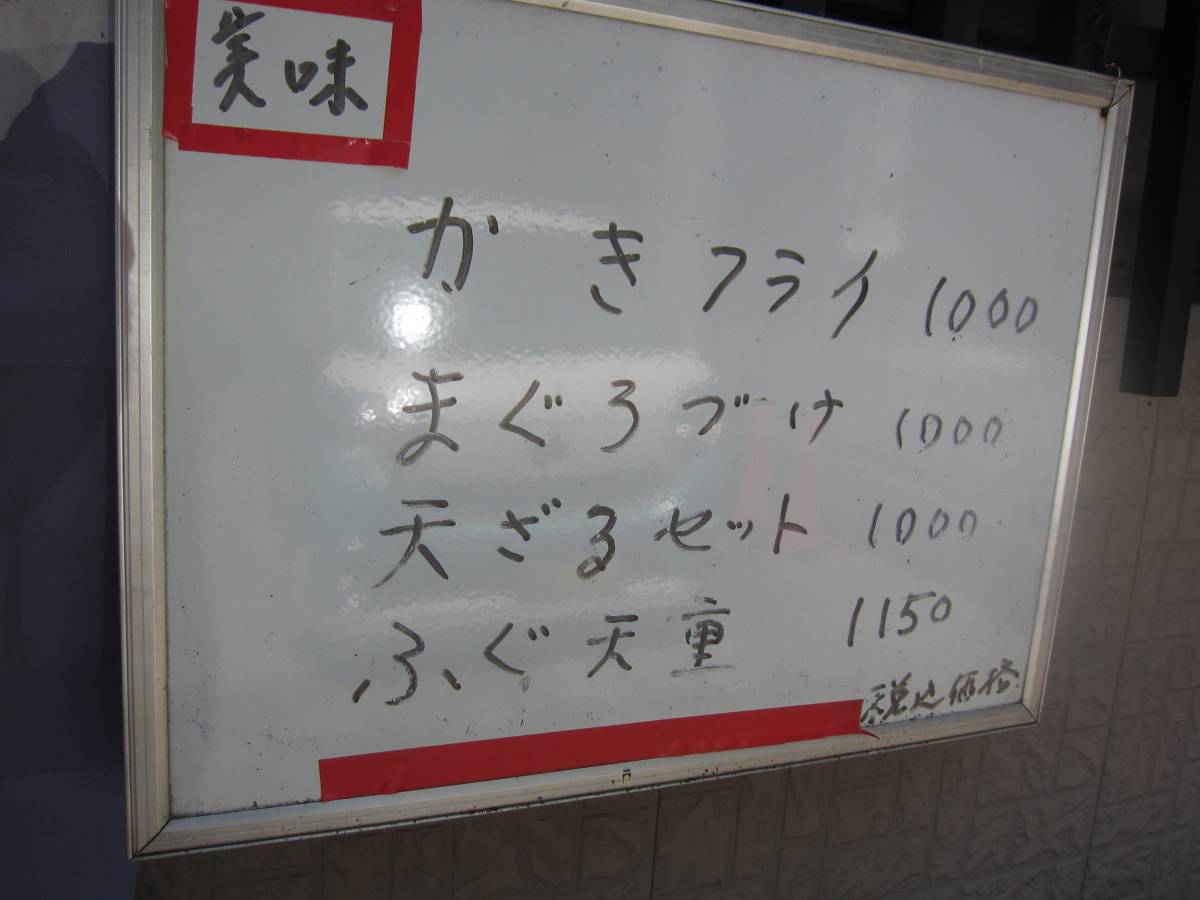 美味
かきフライ 1000
まぐろづけ 1000
天ざるセット 1000
ふぐ天重 1150
税込価格